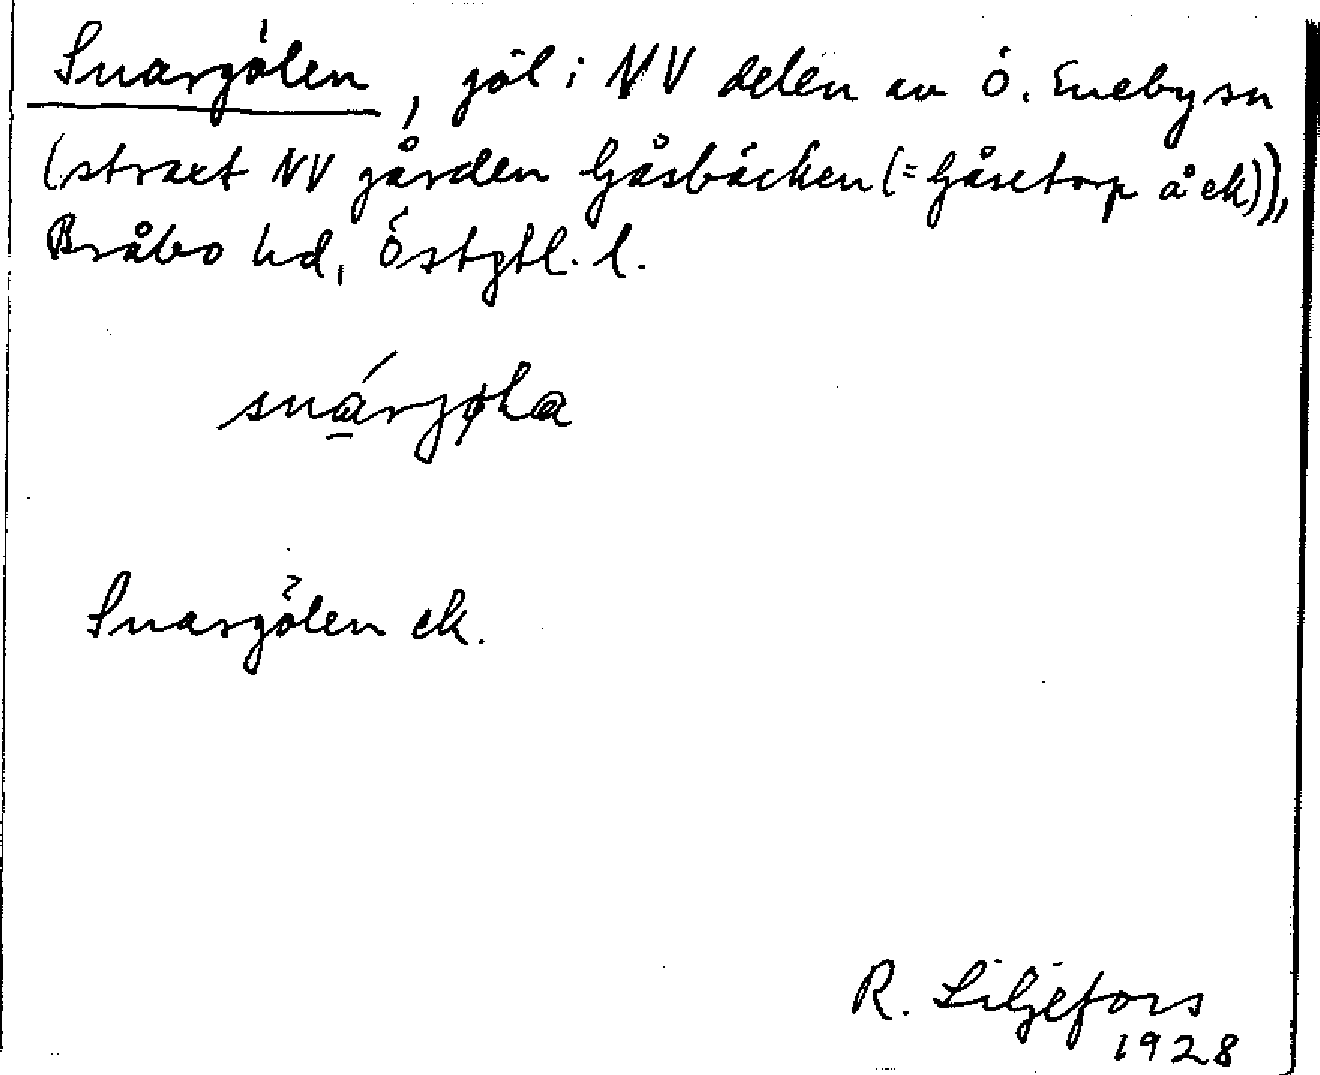 Snargölen, göl i NV delen av Ö. Eneby sn
(strax NV gården Gåsbäcken (= Gåsetorp å ek)),
Bråbo hd, Östgtl. l.
Snargölen ek.
R. Liljefors
1928